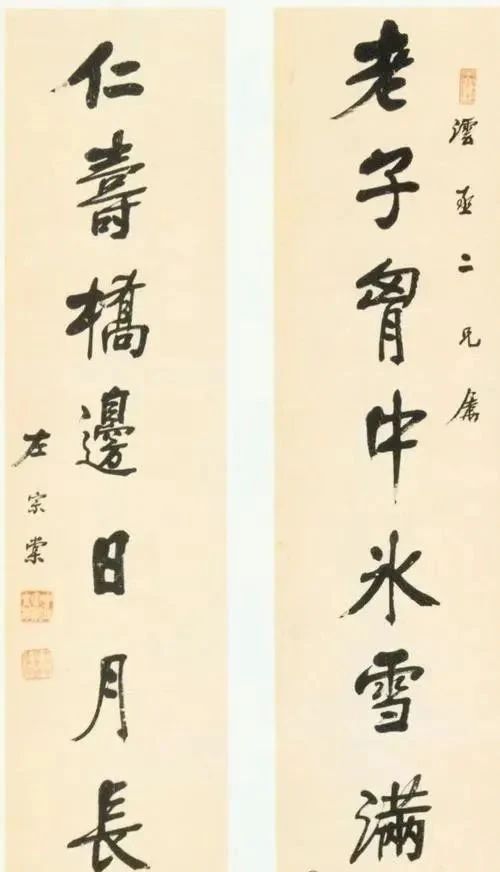 澐亟二兄屬
老子胷中冰雪滿
仁壽橋邊日月長
左宗棠